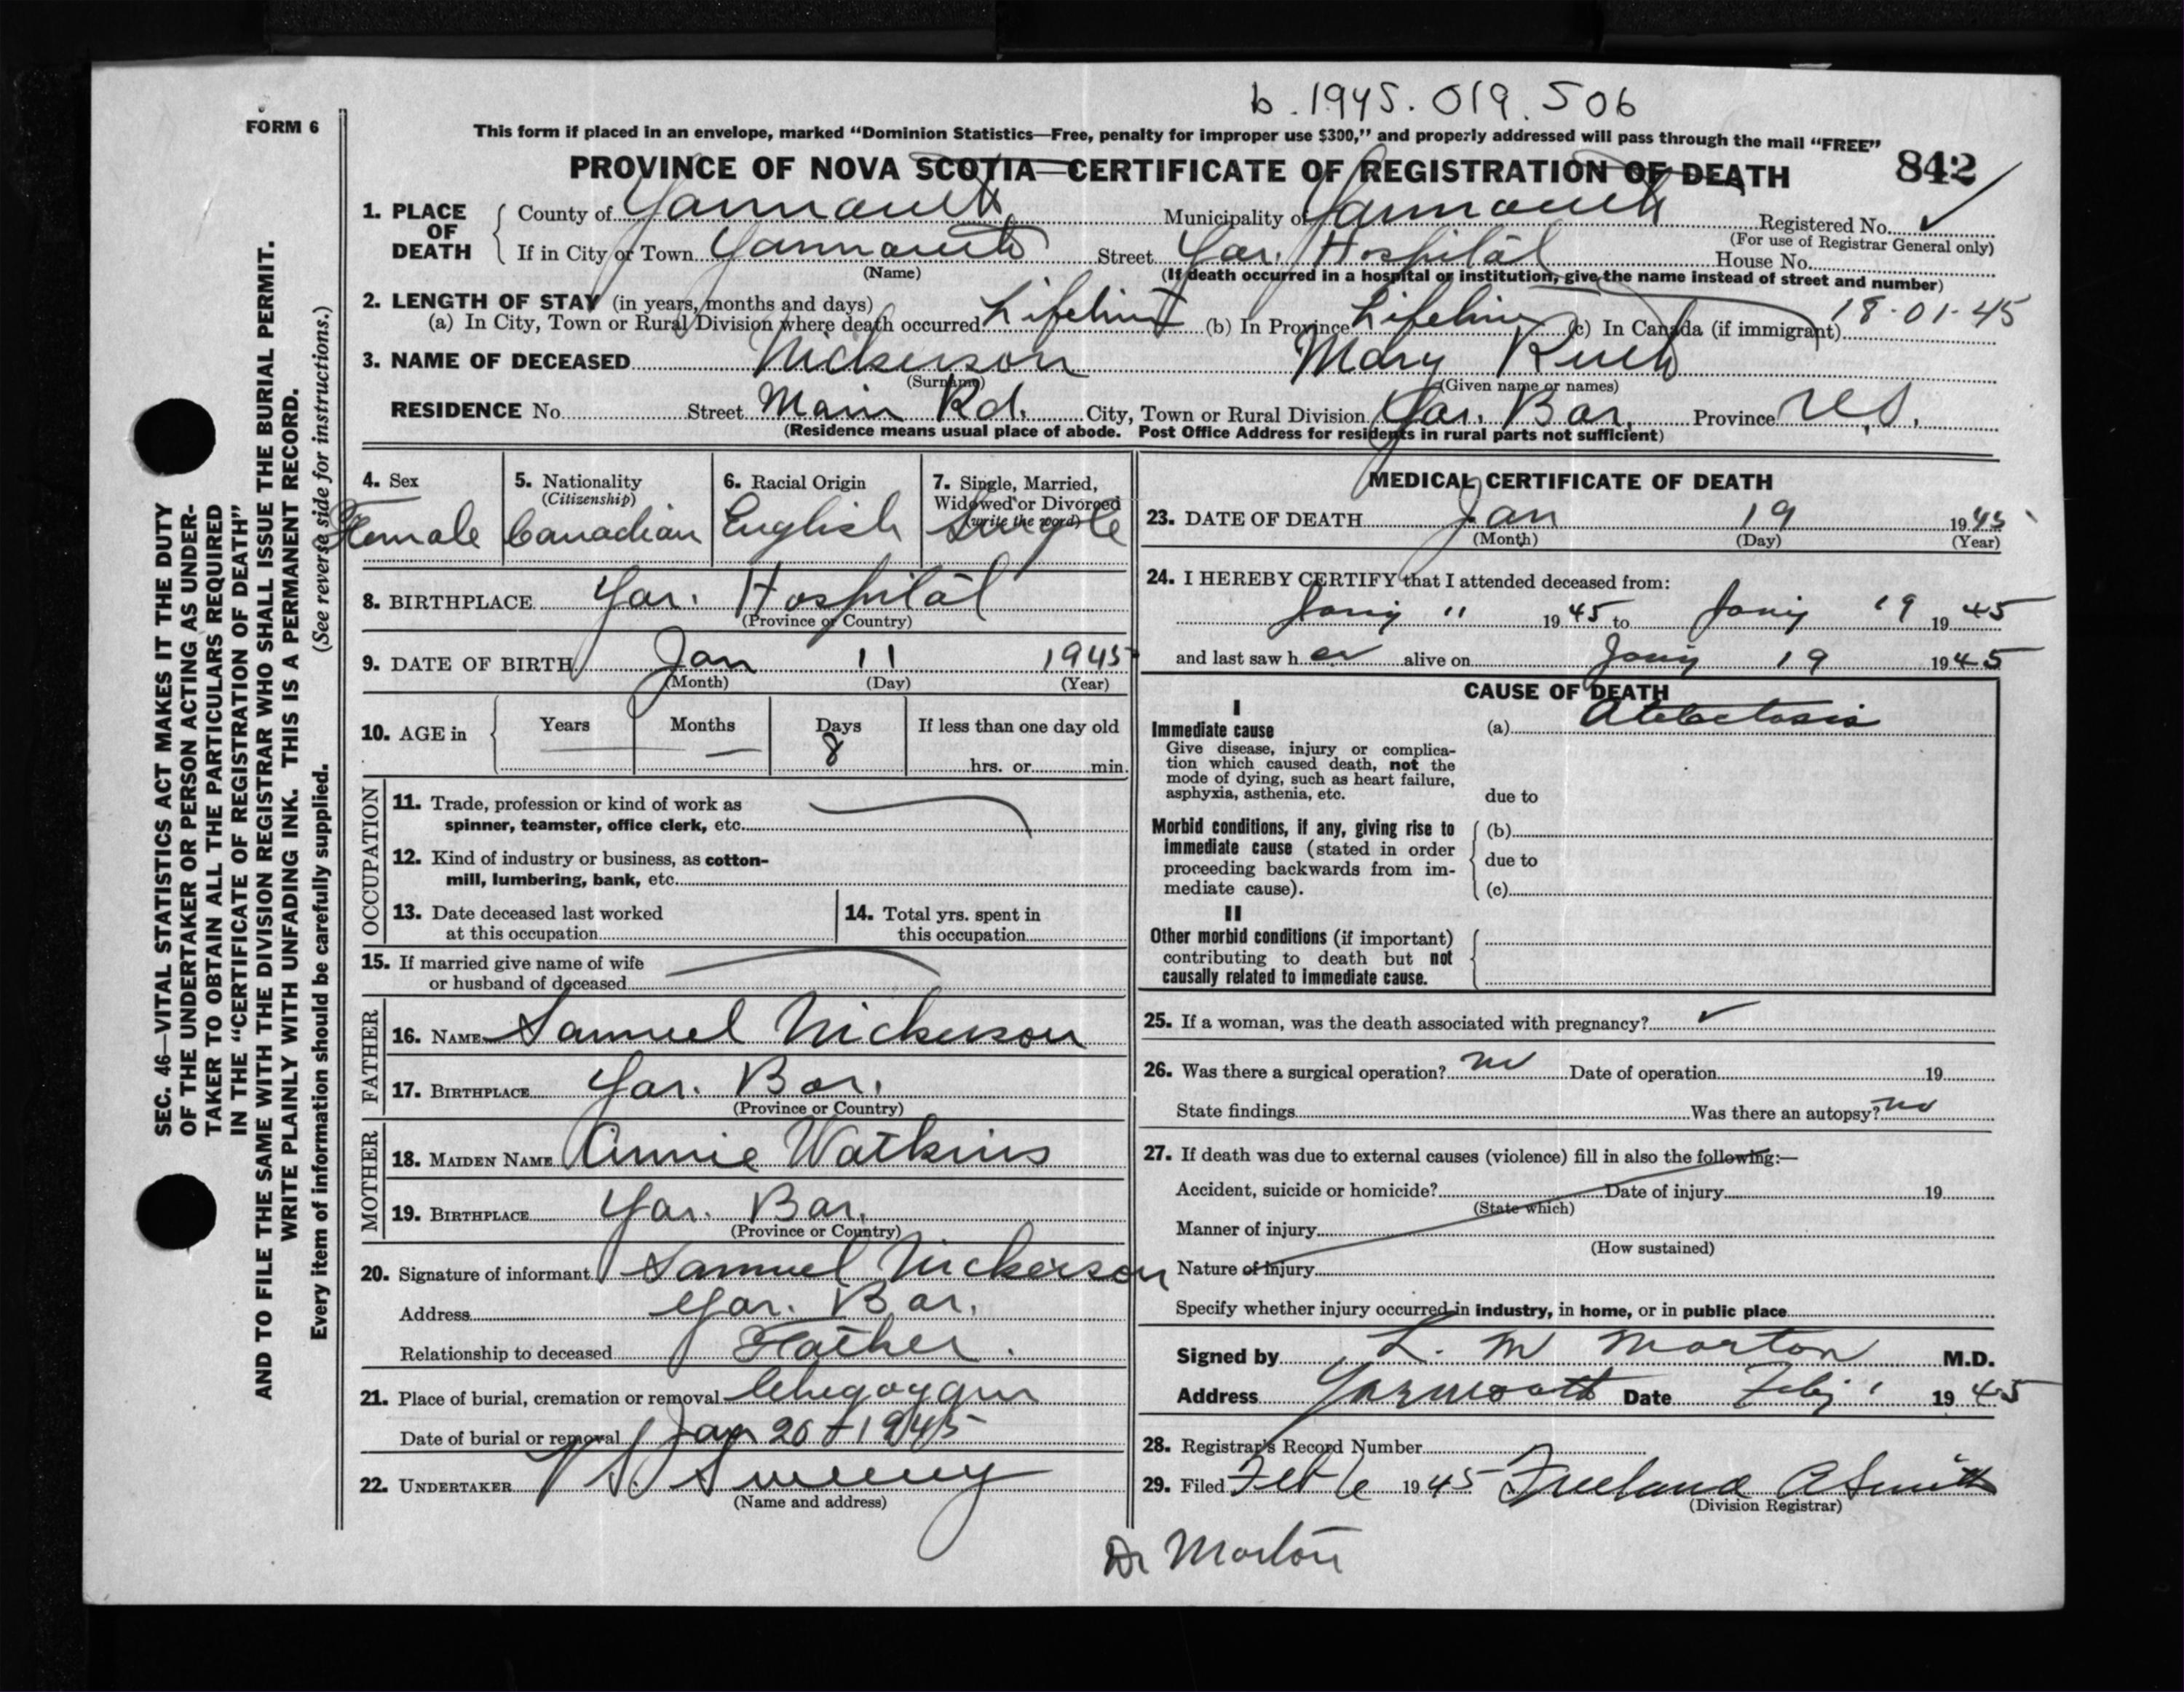 b. 1945. 019. 506
FORM 6
This form if placed in an envelope, marked “Dominion Statistics—Free, penalty for improper use $300,” and properly addressed will pass through the mail “FREE”
PROVINCE OF NOVA SCOTIA—CERTIFICATE OF REGISTRATION OF DEATH 842
1. PLACE OF DEATH
County of Yarmouth Municipality of Yarmouth Registered No. ✓
(For use of Registrar General only)
If in City or Town Yarmouth Street Yar. Hospital House No.
(Name) (If death occurred in a hospital or institution, give the name instead of street and number)
2. LENGTH OF STAY (in years, months and days)
(a) In City, Town or Rural Division where death occurred Lifetime (b) In Province Lifetime (c) In Canada (if immigrant) 18-01-45
3. NAME OF DECEASED Nickerson Mary Ruth
(Surname) (Given name or names)
RESIDENCE No. Street Main Rd. City, Town or Rural Division Yar. Bar. Province N.S.
(Residence means usual place of abode. Post Office Address for residents in rural parts not sufficient)
4. Sex Female
5. Nationality (Citizenship) Canadian
6. Racial Origin English
7. Single, Married, Widowed or Divorced (write the word) Single
8. BIRTHPLACE Yar. Hospital
(Province or Country)
9. DATE OF BIRTH Jan 11 1945
(Month) (Day) (Year)
10. AGE in Years — Months — Days 8 If less than one day old
hrs. or min.
OCCUPATION
11. Trade, profession or kind of work as
spinner, teamster, office clerk, etc.
12. Kind of industry or business, as cotton-
mill, lumbering, bank, etc.
13. Date deceased last worked
at this occupation
14. Total yrs. spent in
this occupation
15. If married give name of wife
or husband of deceased
FATHER
16. NAME Samuel Nickerson
17. BIRTHPLACE Yar. Bar.
(Province or Country)
MOTHER
18. MAIDEN NAME Annie Watkins
19. BIRTHPLACE Yar. Bar.
(Province or Country)
20. Signature of informant Samuel Nickerson
Address Yar. Bar.
Relationship to deceased Father.
21. Place of burial, cremation or removal Chegoggin
Date of burial or removal Jan 20 - 1945
22. UNDERTAKER V S Sweeny
(Name and address)
MEDICAL CERTIFICATE OF DEATH
23. DATE OF DEATH Jan 19 1945
(Month) (Day) (Year)
24. I HEREBY CERTIFY that I attended deceased from:
Jany 11 1945 to Jany 19 1945
and last saw h er alive on Jany 19 1945
CAUSE OF DEATH
I
Immediate cause
Give disease, injury or complica-
tion which caused death, not the
mode of dying, such as heart failure,
asphyxia, asthenia, etc.
(a) Atelectasis
due to
Morbid conditions, if any, giving rise to
immediate cause (stated in order
proceeding backwards from im-
mediate cause).
(b)
due to
(c)
II
Other morbid conditions (if important)
contributing to death but not
causally related to immediate cause.
25. If a woman, was the death associated with pregnancy? ✓
26. Was there a surgical operation? no Date of operation 19
State findings Was there an autopsy? no
27. If death was due to external causes (violence) fill in also the following:—
Accident, suicide or homicide? Date of injury 19
(State which)
Manner of injury
(How sustained)
Nature of injury
Specify whether injury occurred in industry, in home, or in public place
Signed by L. M Morton M.D.
Address Yarmouth Date Feby 1 1945
28. Registrar's Record Number
29. Filed Feb 6 1945 Freeland A Smith
(Division Registrar)
Dr Morton
SEC. 46—VITAL STATISTICS ACT MAKES IT THE DUTY
OF THE UNDERTAKER OR PERSON ACTING AS UNDER-
TAKER TO OBTAIN ALL THE PARTICULARS REQUIRED
IN THE “CERTIFICATE OF REGISTRATION OF DEATH”
AND TO FILE THE SAME WITH THE DIVISION REGISTRAR WHO SHALL ISSUE THE BURIAL PERMIT.
WRITE PLAINLY WITH UNFADING INK. THIS IS A PERMANENT RECORD.
Every item of information should be carefully supplied. (See reverse side for instructions.)